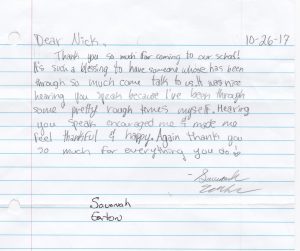 Dear Nick, 10-26-17
Thank you so much for coming to our school!
It's such a blessing to have someone whose has been
through so much come talk to us. It was nice
hearing you speak because I've been through
some pretty rough times myself. Hearing
you speak encouraged me & made me
feel thankful & happy. Again thank you
so much for everything you do!
- Savanah
Savanah